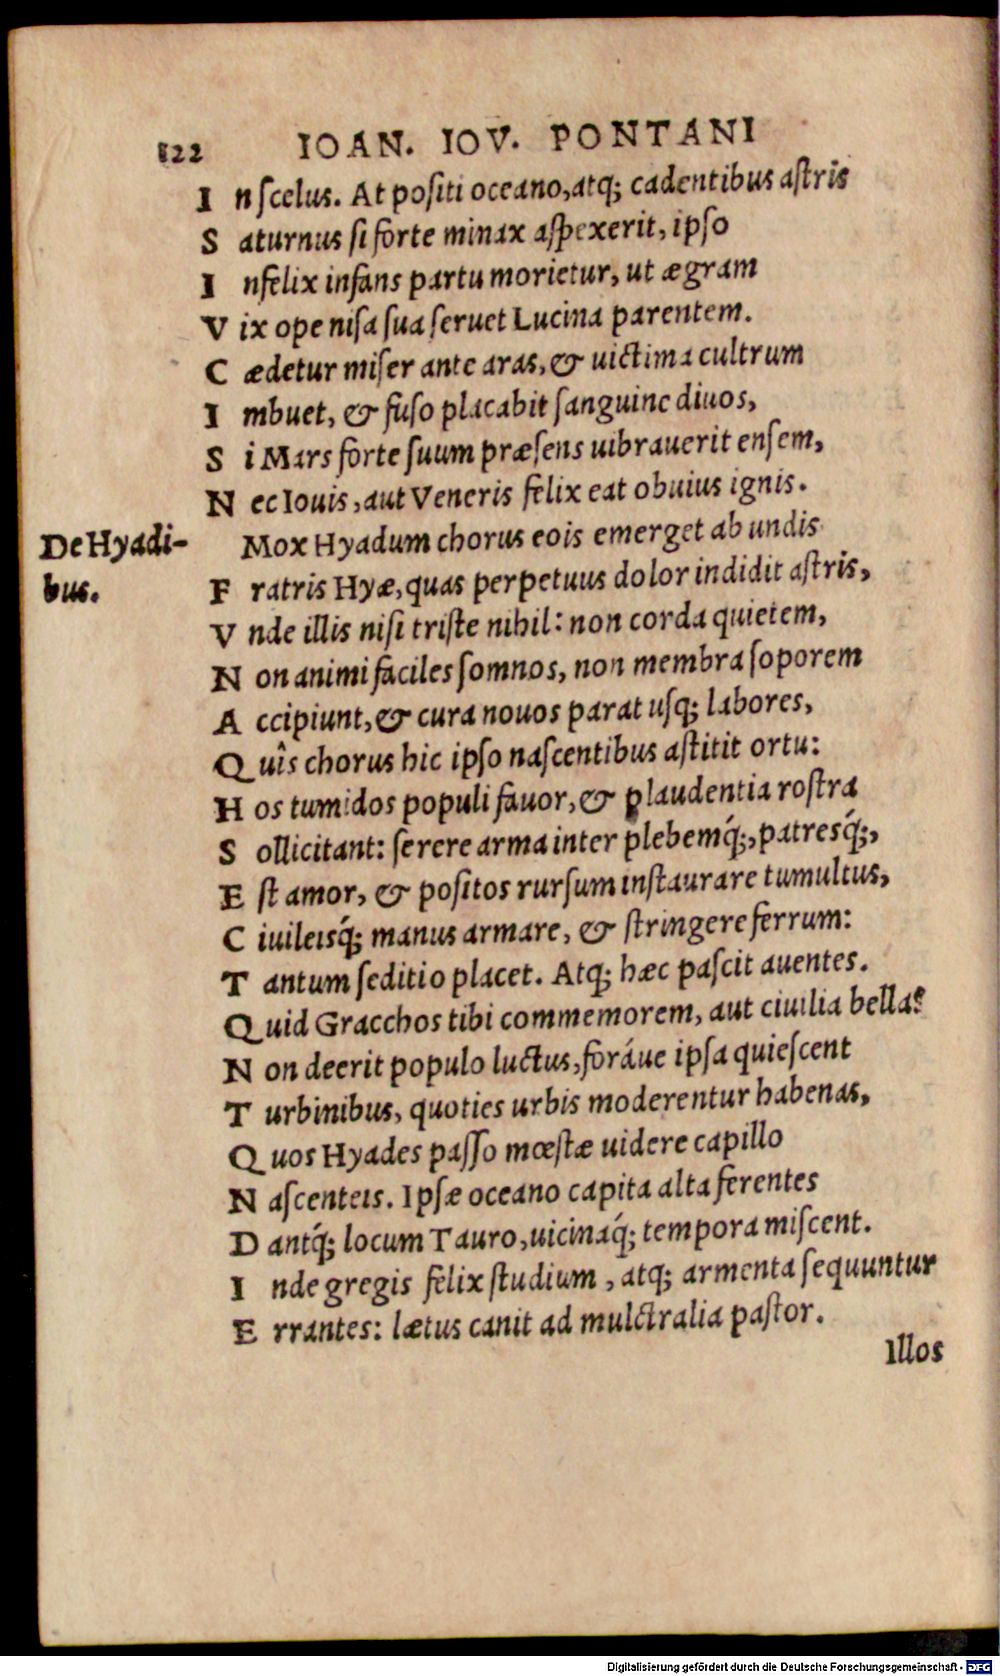 122 IOAN. IOV. PONTANI
In ſcelus. At poſiti oceano, atq; cadentibus aſtris
Saturnus ſi forte minax aſpexerit, ipſo
Infelix infans partu morietur, ut ægram
Vix ope niſa ſua ſeruet Lucina parentem.
Cædetur miſer ante aras, & uictima cultrum
Imbuet, & fuſo placabit ſanguine diuos,
Si Mars forte ſuum præſens uibrauerit enſem,
Nec Iouis, aut Veneris felix eat obuius ignis.
De Hyadi-
bus.
Mox Hyadum chorus eois emerget ab undis
Fratris Hyæ, quas perpetuus dolor indidit aſtris,
Vnde illis niſi triſte nihil: non corda quietem,
Non animi faciles ſomnos, non membra ſoporem
Accipiunt, & cura nouos parat uſq; labores,
Quîs chorus hic ipſo naſcentibus aſtitit ortu:
Hos tumidos populi fauor, & plaudentia roſtra
Sollicitant: ſerere arma inter plebemq́;, patresq́;,
Eſt amor, & poſitos rurſum inſtaurare tumultus,
Ciuileisq́; manus armare, & ſtringere ferrum:
Tantum ſeditio placet. Atq; hæc paſcit auentes.
Quid Gracchos tibi commemorem, aut ciuilia bella?
Non deerit populo luctus, foráue ipſa quieſcent
Turbinibus, quoties urbis moderentur habenas,
Quos Hyades paſſo mœſtæ uidere capillo
Naſcenteis. Ipſæ oceano capita alta ferentes
Dantq́; locum Tauro, uicinaq́; tempora miſcent.
Inde gregis felix ſtudium, atq; armenta ſequuntur
Errantes: lætus canit ad mulctralia paſtor.
Illos
Digitalisierung gefördert durch die Deutsche Forschungsgemeinschaft - DFG